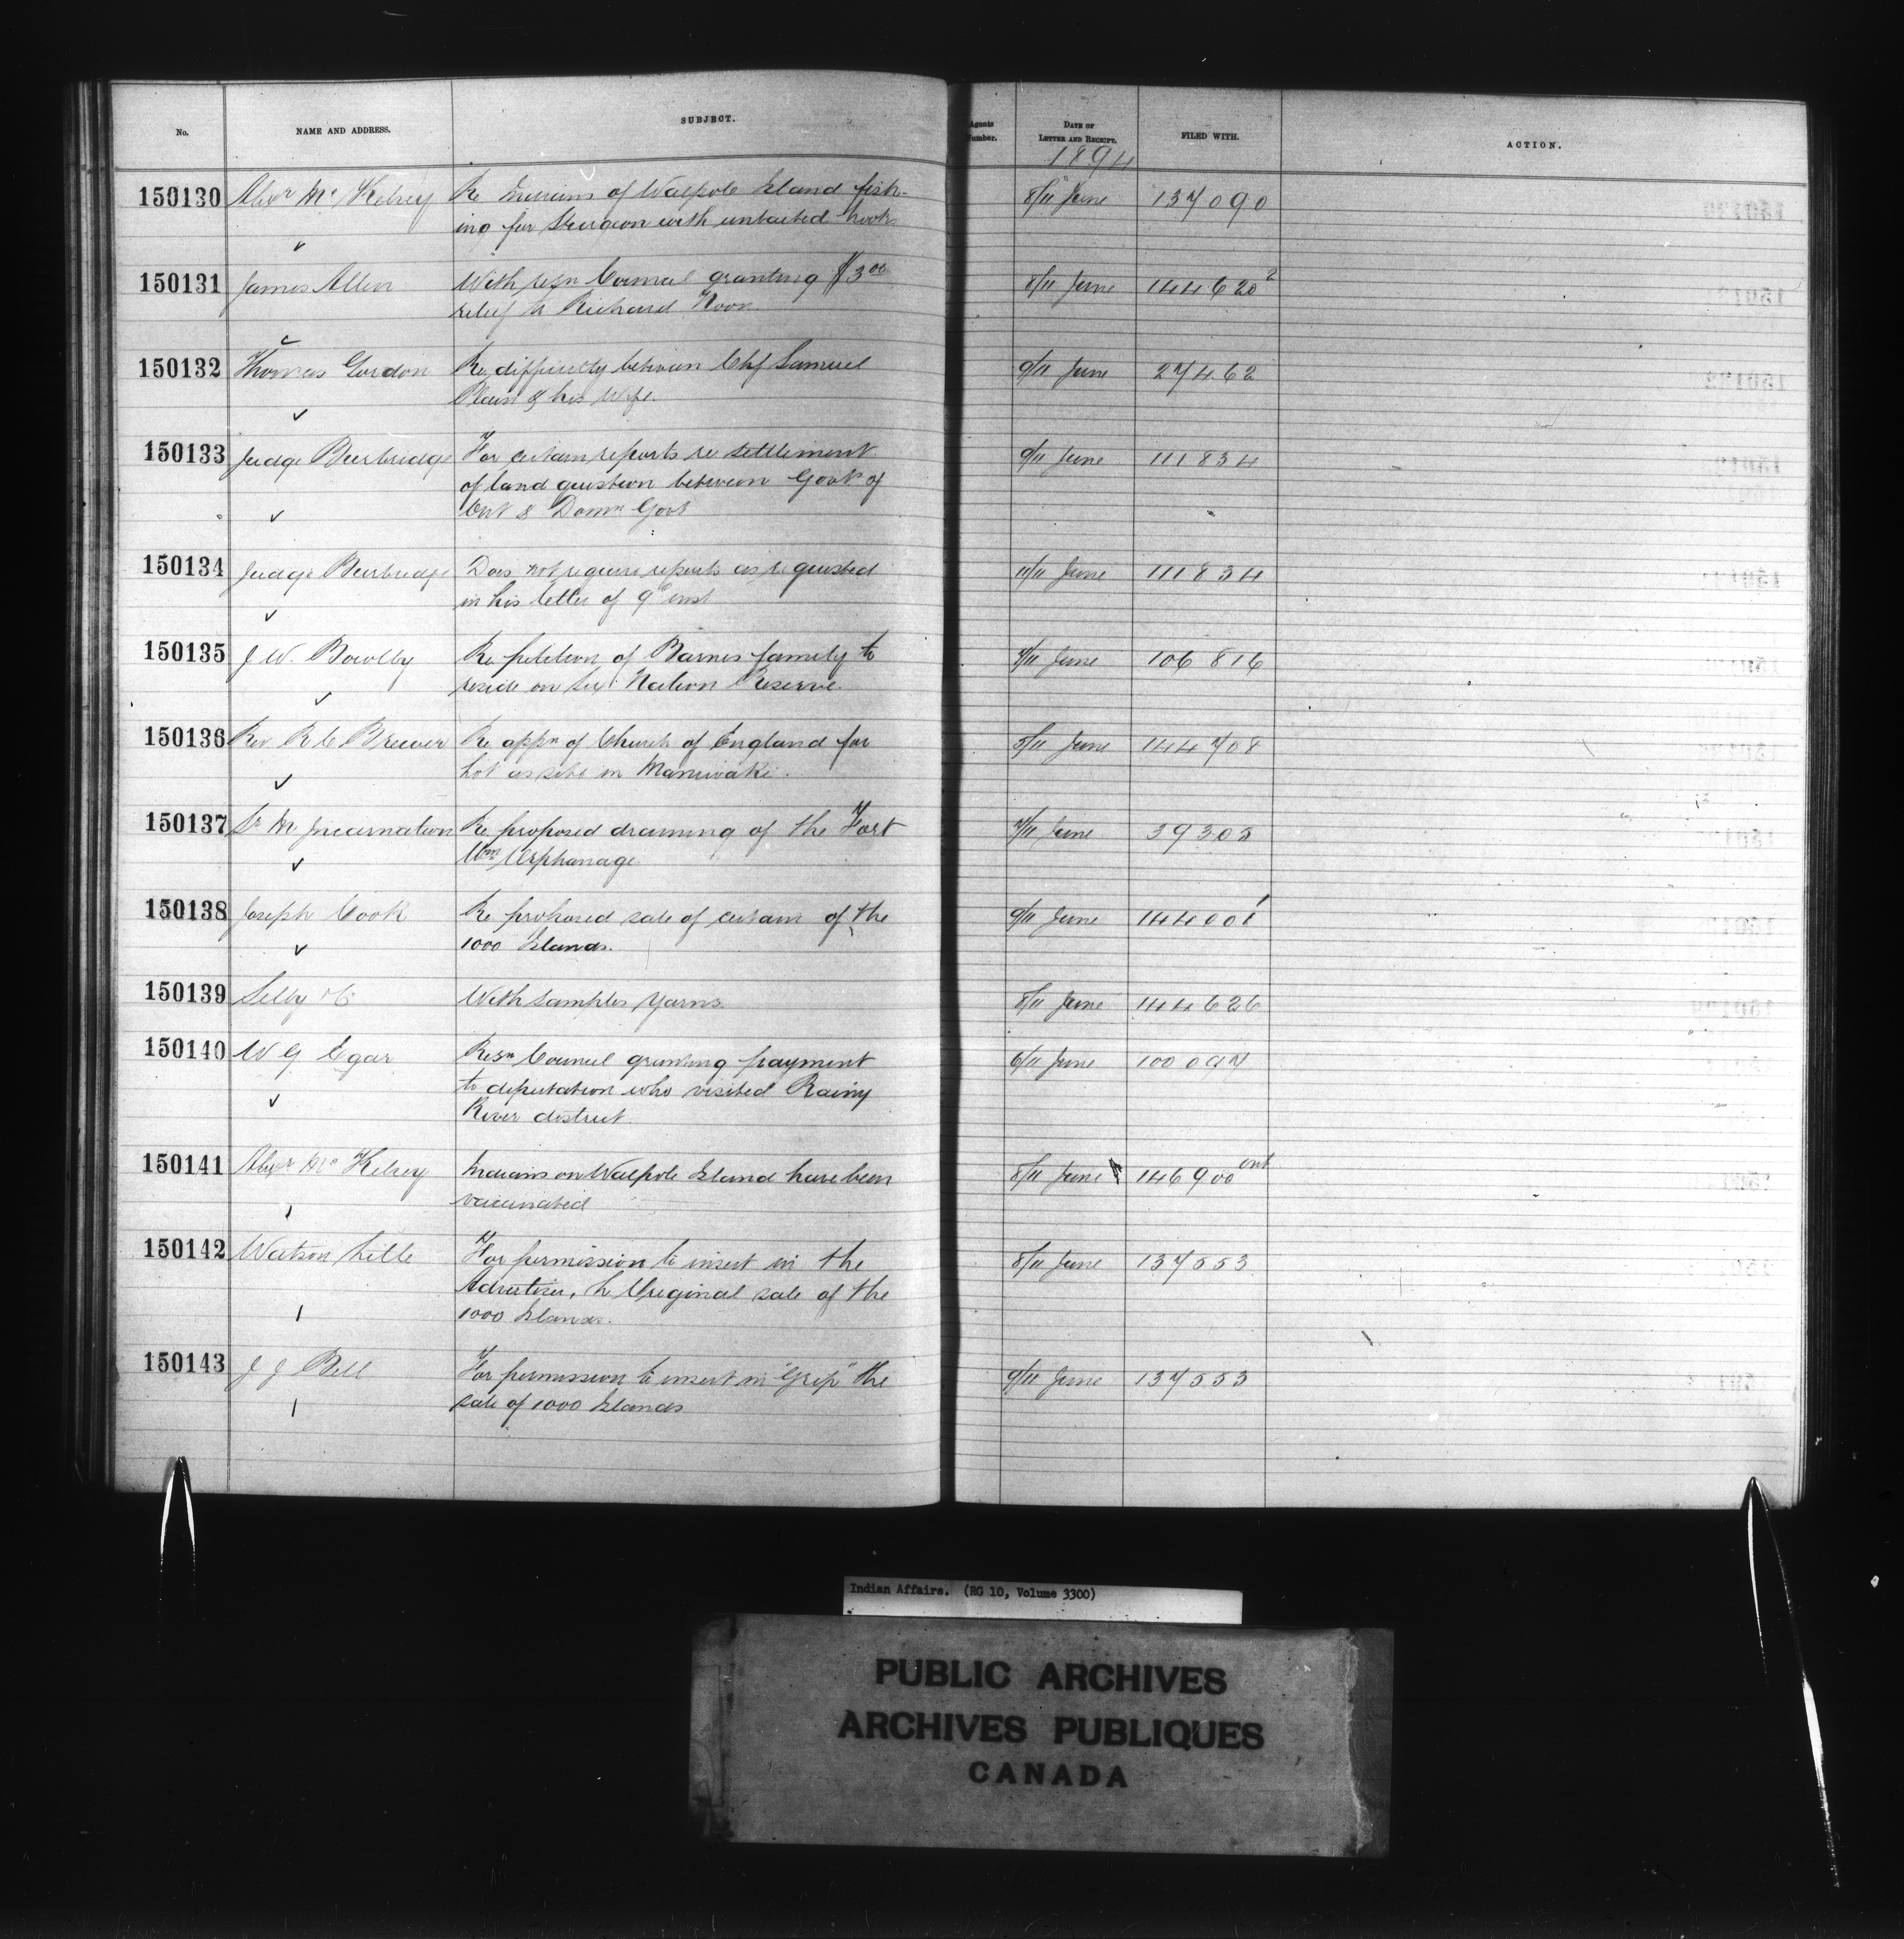 No. NAME AND ADDRESS. SUBJECT. Agents Number. DATE OF LETTER AND RECEIPT. FILED WITH. ACTION.
1894
150130 Alexr Mc Kelvey Re Indians of Walpole Island fish- 8/11 June 137090
ing for Sturgeon with unbaited hooks
150131 James Allen With resn Council granting $3 00 8/11 June 144620 2
relief to Richard
150132 Thomas Gordon Re difficulty between Chf Samuel 9/11 June 27462
Plain & his Wife.
150133 Judge Burbridge For certain reports re settlement 9/11 June 111834
of land question between Govt of
Ont & Domn Govt
150134 Judge Burbridge Does not require reports as requested 11/11 June 111834
in his letter of 9th inst
150135 J W. Bowlby Re petition of Barnes family to 7/11 June 106816
reside on Six Nation Reserve.
150136 Rev R C Brewer Re appn of Church of England for 5/11 June 144708
Lot as site in Maniwaki.
150137 Sr M Incarnation Re proposed draining of the Fort 7/11 June 39305
Wm Orphanage
150138 Joseph Cook Re proposed sale of certain of the 9/11 June 144001
1000 Islands.
150139 Selby & Co With samples Yarns. 8/11 June 144626
150140 W G Egar Resn Council granting payment 6/11 June 100097
to deputation who visited Rainy
River district.
150141 Alexr Mc Kelvey Indians on Walpole Island have been 8/11 June 146900 ont
vaccinated
150142 Watson Little For permission to insert in the 8/11 June 137553
Advertiser, the Original sale of the
1000 Islands.
150143 J J Bell For permission to insert in "Grip" the 9/11 June 137553
sale of 1000 Islands
Indian Affairs. (RG 10, Volume 3300)
PUBLIC ARCHIVES
ARCHIVES PUBLIQUES
CANADA